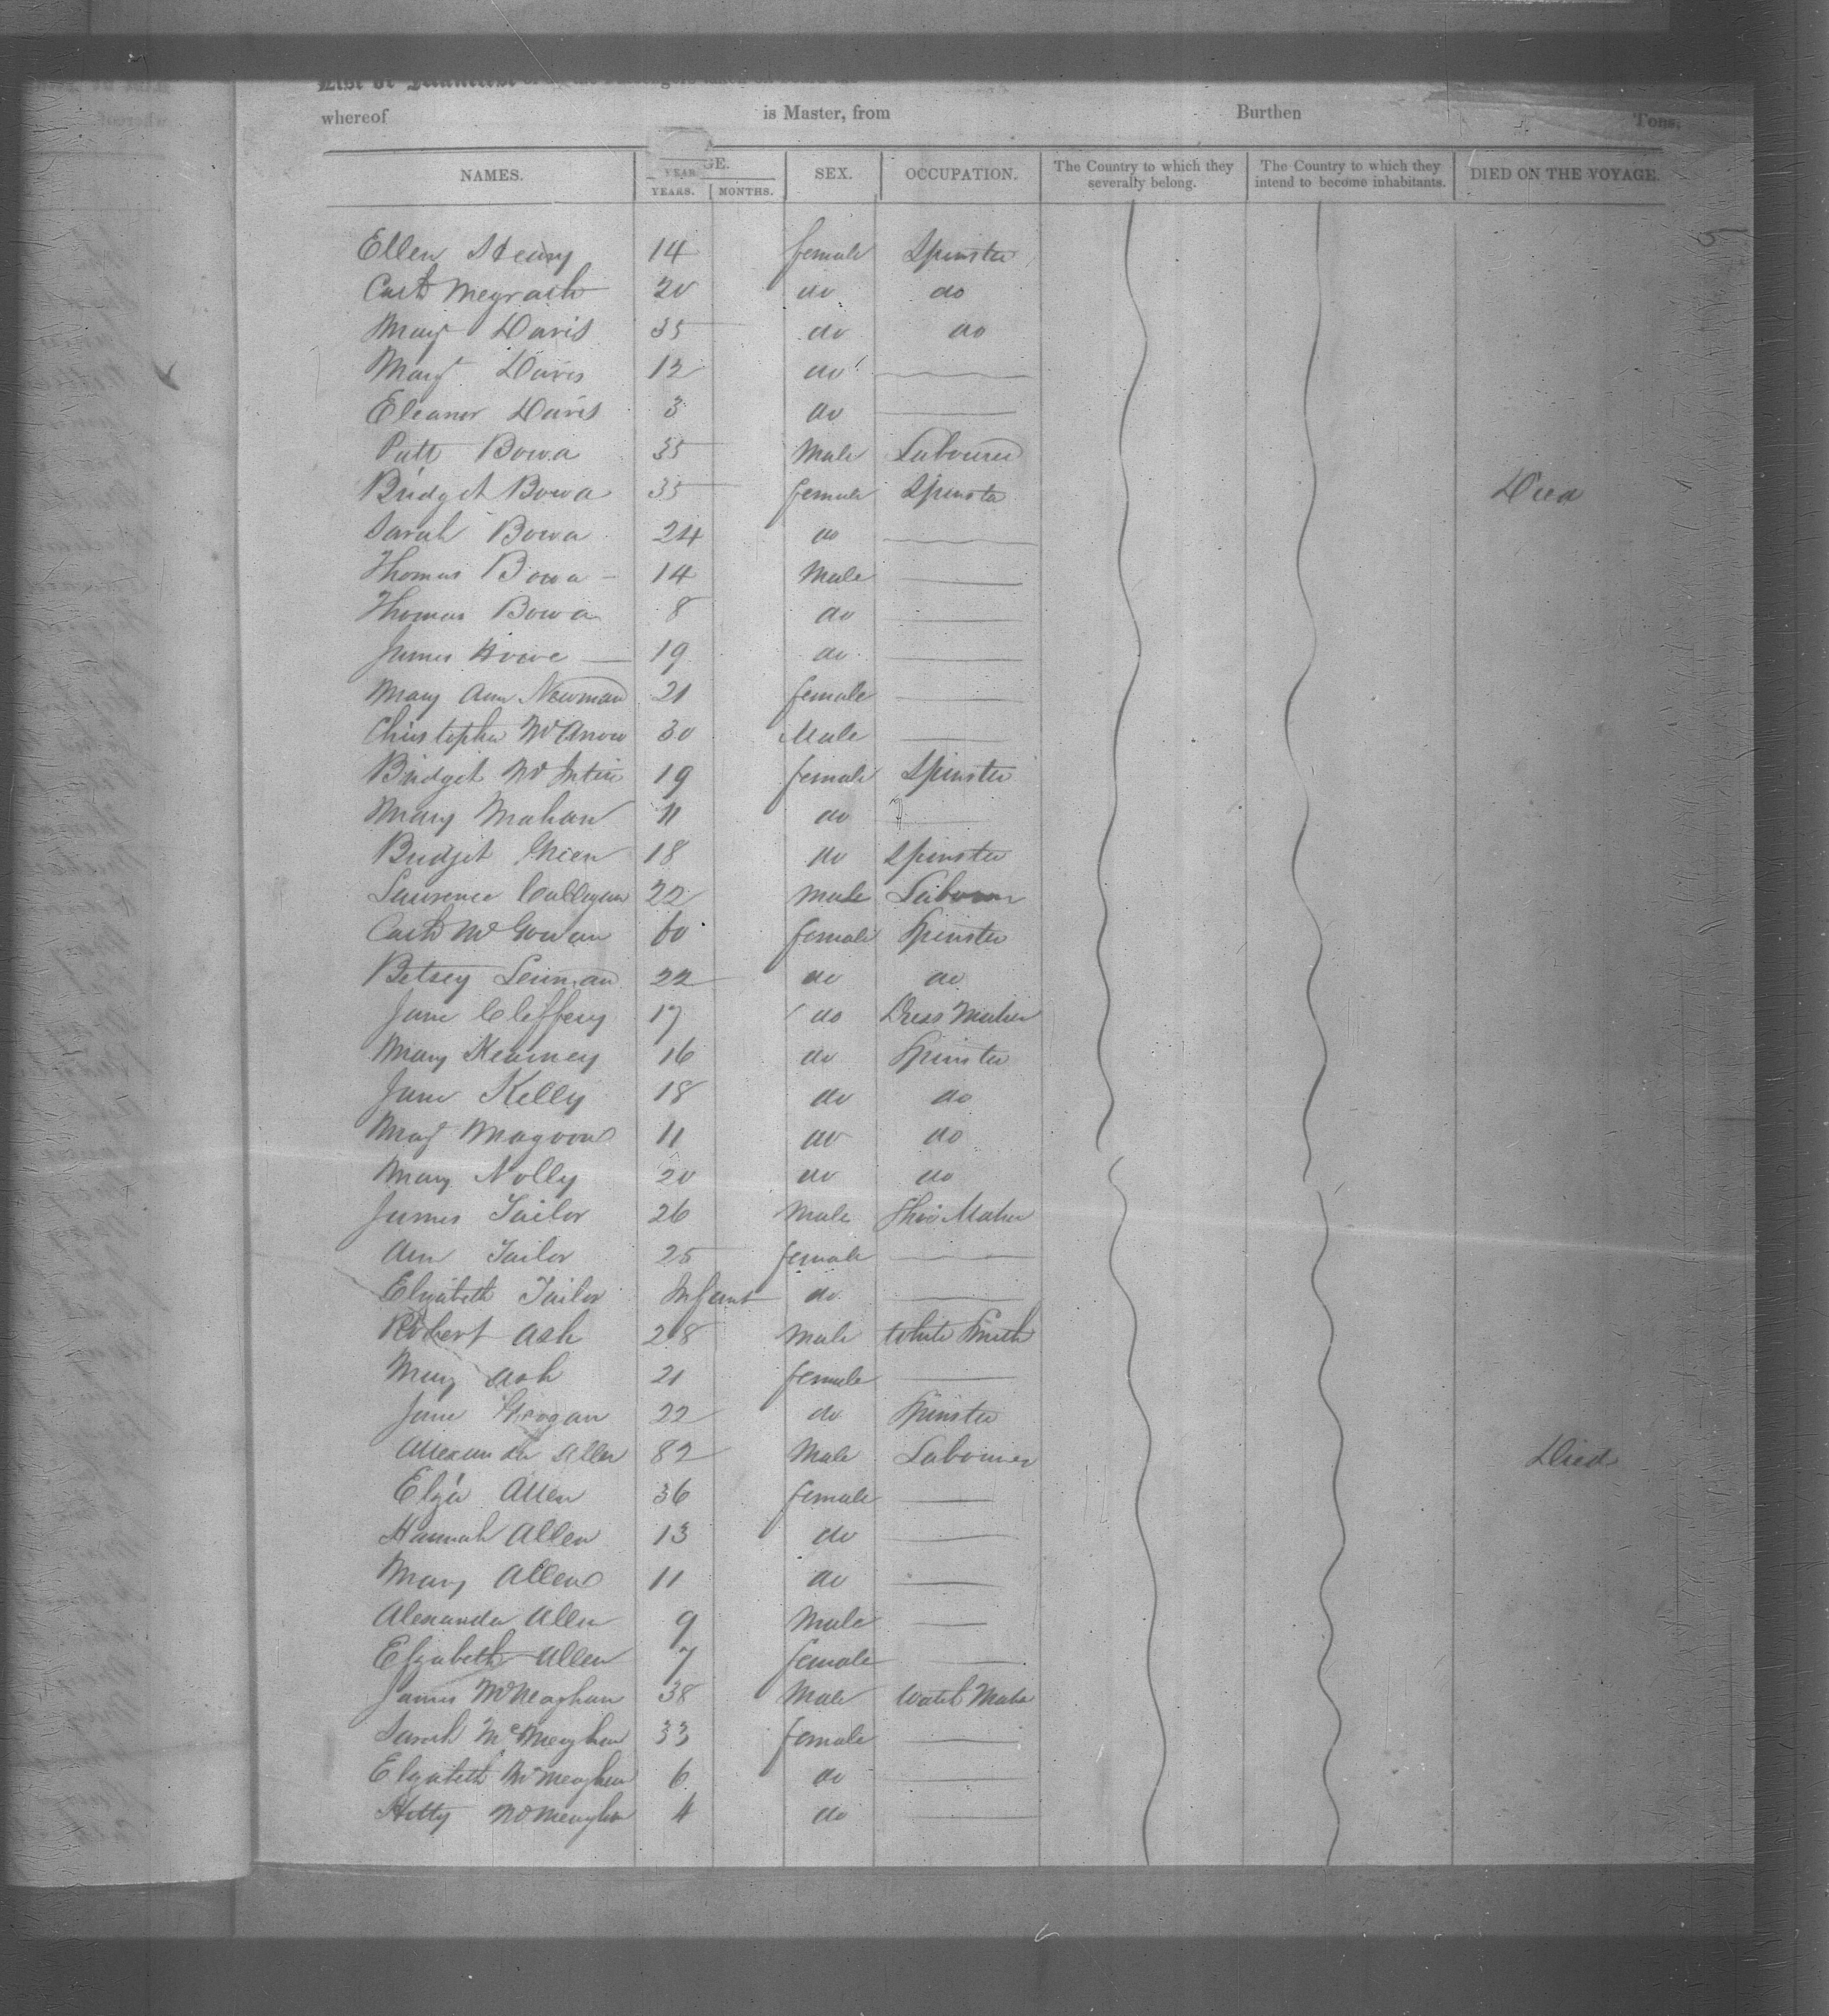 List or Manifest of all the Passengers taken on board the
whereof is Master, from Burthen Tons.
NAMES. AGE. SEX. OCCUPATION. The Country to which they severally belong. The Country to which they intend to become inhabitants. DIED ON THE VOYAGE.
YEARS. MONTHS.
Ellen 14 female Spinster
Cath Megrath 20 do do
Mary Davis 35 do do
Mary Davis 12 do
Eleanor Davis 3 do
Patt Bowa 35 Male Labourer
Bridget Bowa 35 female Spinster Died
Sarah Bowa 24 do
Thomas Bowa 14 Male
Thomas Bowa 8 do
James Howe 19 do
Mary Ann Newman 21 female
Christopher 30 Male
Bridget McIntire 19 female Spinster
Mary Mahan 11 do
Bridjet 18 do Spinster
Lawrence Callegan 22 Male Labourer
Cath McGowan 60 female Spinster
Betsey 22 do do
Jane Cleffery 17 do Dress Maker
Mary Kearney 16 do Spinster
Jane Kelly 18 do do
Mary 11 do do
Mary Nolly 20 do do
James Tailor 26 Male Shoe Maker
Ann Tailor 25 female
Elizabeth Tailor Infant do
Robert Ash 28 Male White Smith
Mary Ash 21 female
Jane Grogan 22 do Spinster
Allexander Allen 82 Male Labourer Died
Eliza Allen 36 female
Hannah Allen 13 do
Mary Allen 11 do
Alexander Allen 9 Male
Elizabeth Allen 7 female
James McMeaghan 38 Male Watch Maker
Sarah McMeaghan 33 female
Elizabeth McMeaghan 6 do
Hetty McMeaghan 4 do